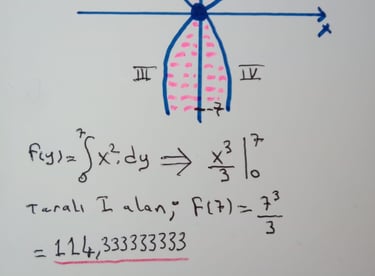 x
III IV
-7
F(y) = ∫₀⁷ x². dy ⇒ x³/3 |₀⁷
Taralı I alan; F(7) = 7³/3
= 114,333333333